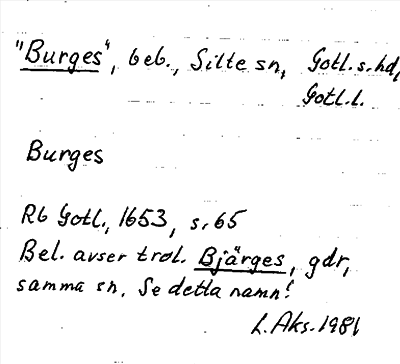 "Burges", beb., Silte sn, Gotl. s. hd,
Gotl. l.
Burges
Rb Gotl., 1653, s. 65
Bel. avser trol. Bjärges, gdr,
samma sn. Se detta namn!
L. Aks. 1981